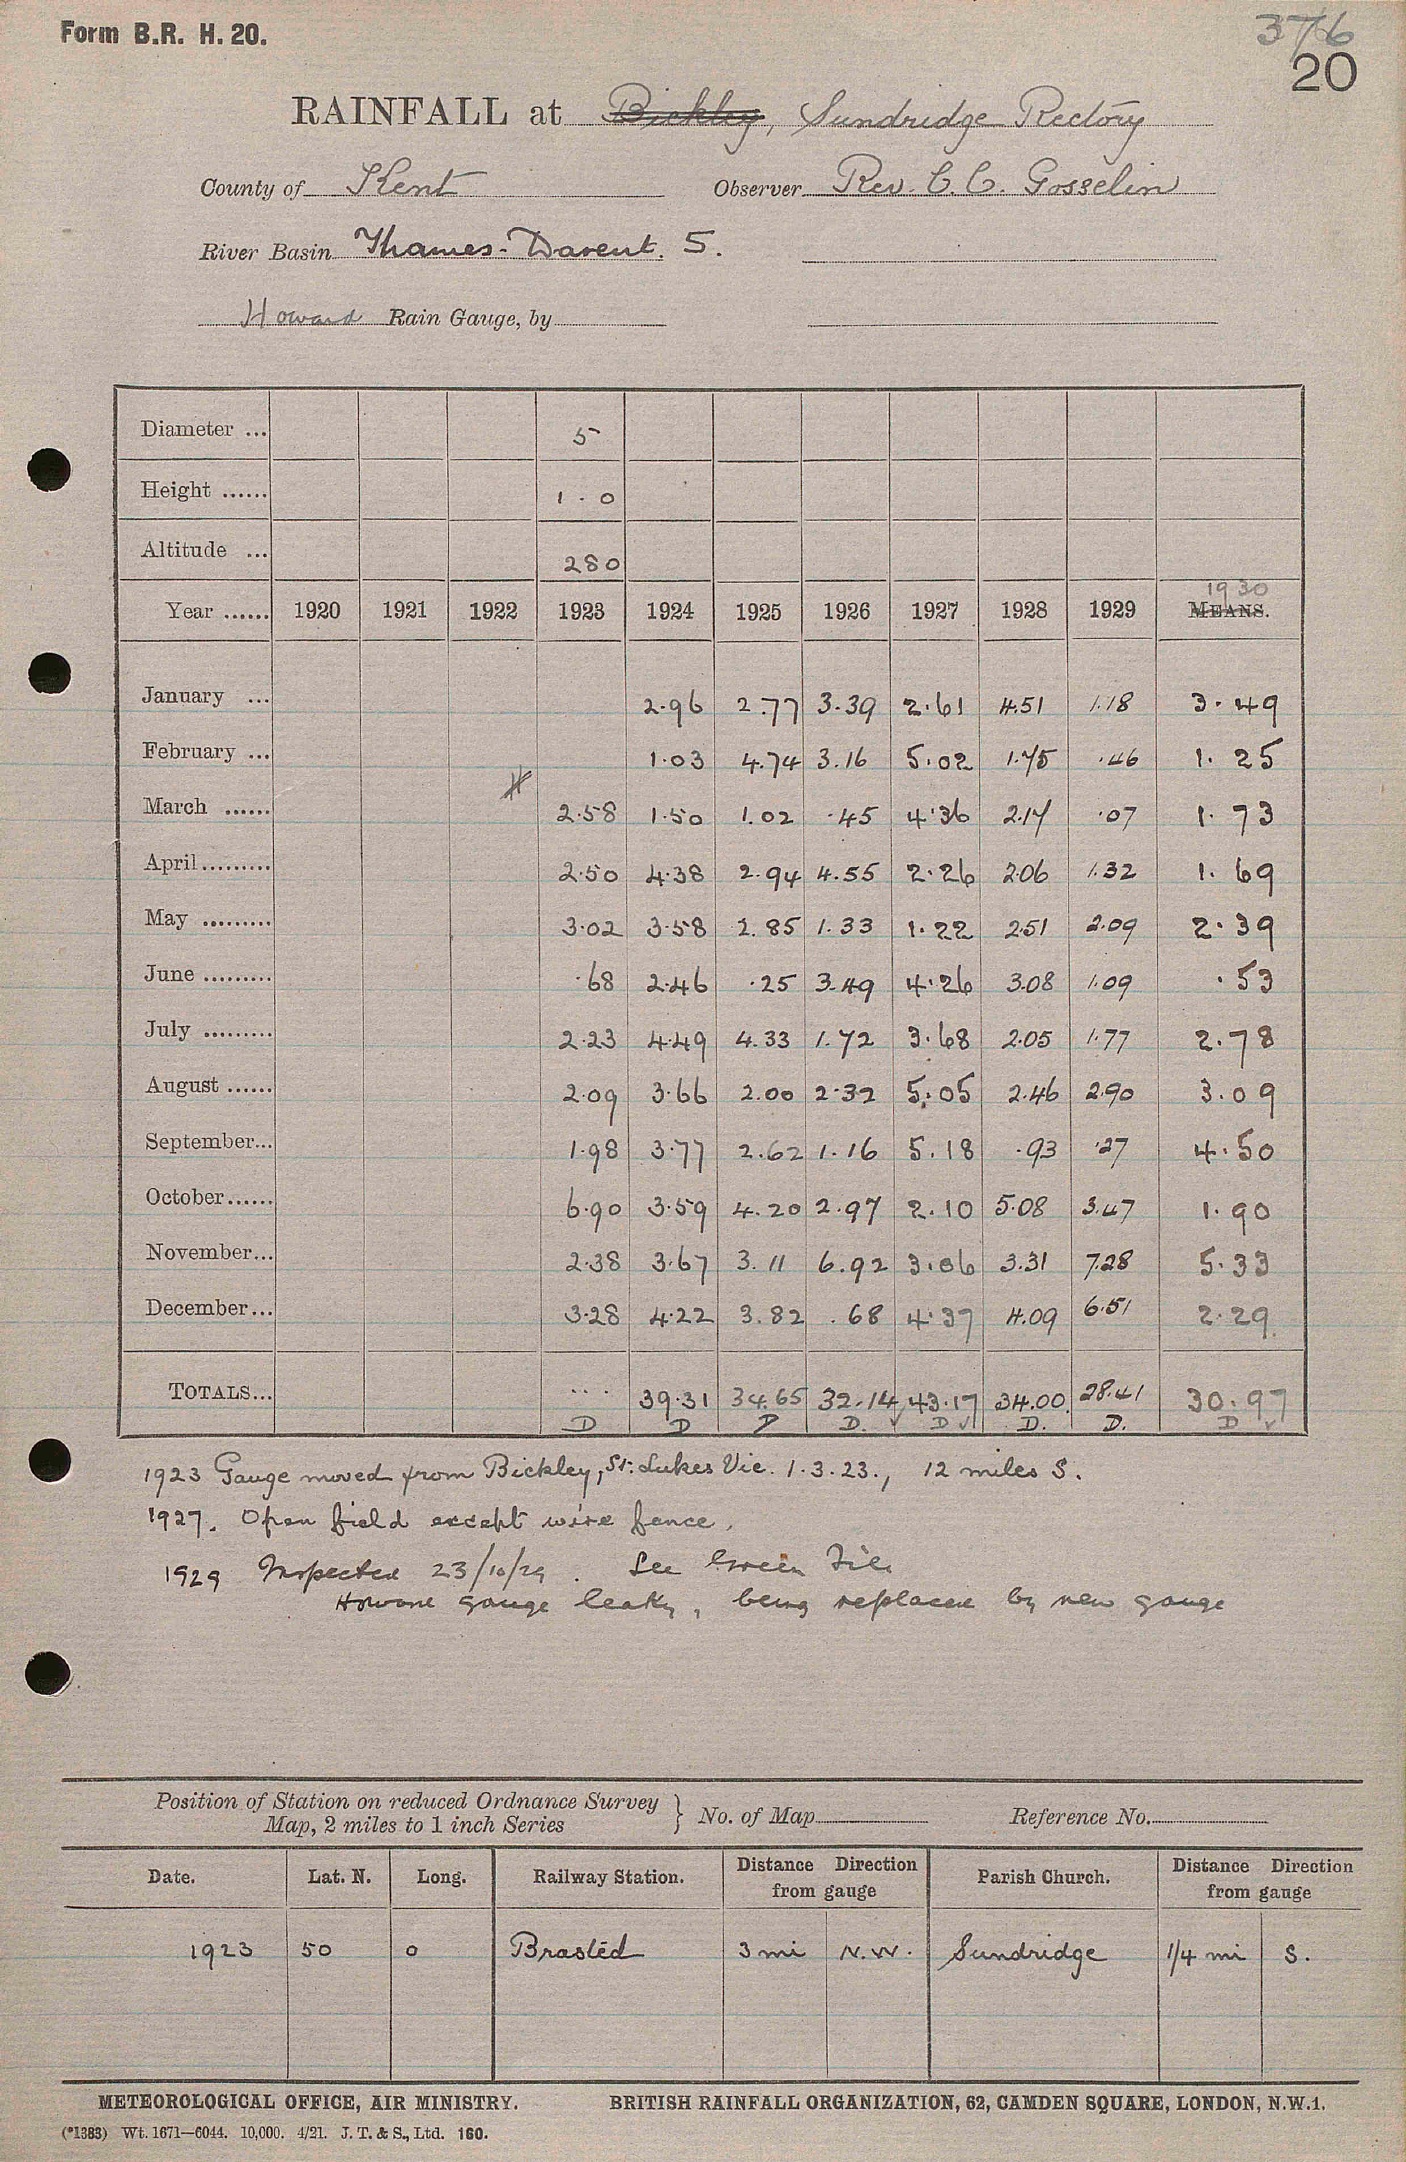 Form B.R. H. 20.
376
20
RAINFALL at Bickley, Sundridge Rectory
County of Kent Observer Rev. C. C. Gosselin
River Basin Thames-Darent. 5.
Howard Rain Gauge, by
Diameter ... 5
Height ...... 1.0
Altitude ... 280
1930
Year ...... 1920 1921 1922 1923 1924 1925 1926 1927 1928 1929 MEANS.
January ... 2.96 2.77 3.39 2.61 4.51 1.18 3.49
February ... 1.03 4.74 3.16 5.02 1.75 .46 1.25
March ...... 2.58 1.50 1.02 .45 4.36 2.14 .07 1.73
April......... 2.50 4.38 2.94 4.55 2.26 2.06 1.32 1.69
May ......... 3.02 3.58 2.85 1.33 1.22 2.51 2.09 2.39
June ......... .68 2.46 .25 3.49 4.26 3.08 1.09 .53
July ......... 2.23 4.49 4.33 1.72 3.68 2.05 1.77 2.78
August ...... 2.09 3.66 2.00 2.32 5.05 2.46 2.90 3.09
September... 1.98 3.77 2.62 1.16 5.18 .93 .27 4.50
October...... 6.90 3.59 4.20 2.97 2.10 5.08 3.47 1.90
November... 2.38 3.67 3.11 6.92 3.06 3.31 7.28 5.33
December... 3.28 4.22 3.82 .68 4.37 4.09 6.51 2.29
TOTALS... .... 39.31 34.65 32.14 43.17 34.00 28.41 30.97
D D D D. D D. D. D
1923 Gauge moved from Bickley, St. Lukes Vic. 1.3.23., 12 miles S.
1927. Open field except wire fence.
1929 Inspected 23/10/29. See Green File
Howard gauge leaky, being replaced by new gauge
Position of Station on reduced Ordnance Survey
Map, 2 miles to 1 inch Series } No. of Map Reference No.
Date. Lat. N. Long. Railway Station. Distance Direction from gauge Parish Church. Distance Direction from gauge
1923 50 0 Brasted 3 mi N.W. Sundridge 1/4 mi S.
METEOROLOGICAL OFFICE, AIR MINISTRY. BRITISH RAINFALL ORGANIZATION, 62, CAMDEN SQUARE, LONDON, N.W.1.
(*1383) Wt. 1671—6044. 10,000. 4/21. J. T. & S., Ltd. 160.